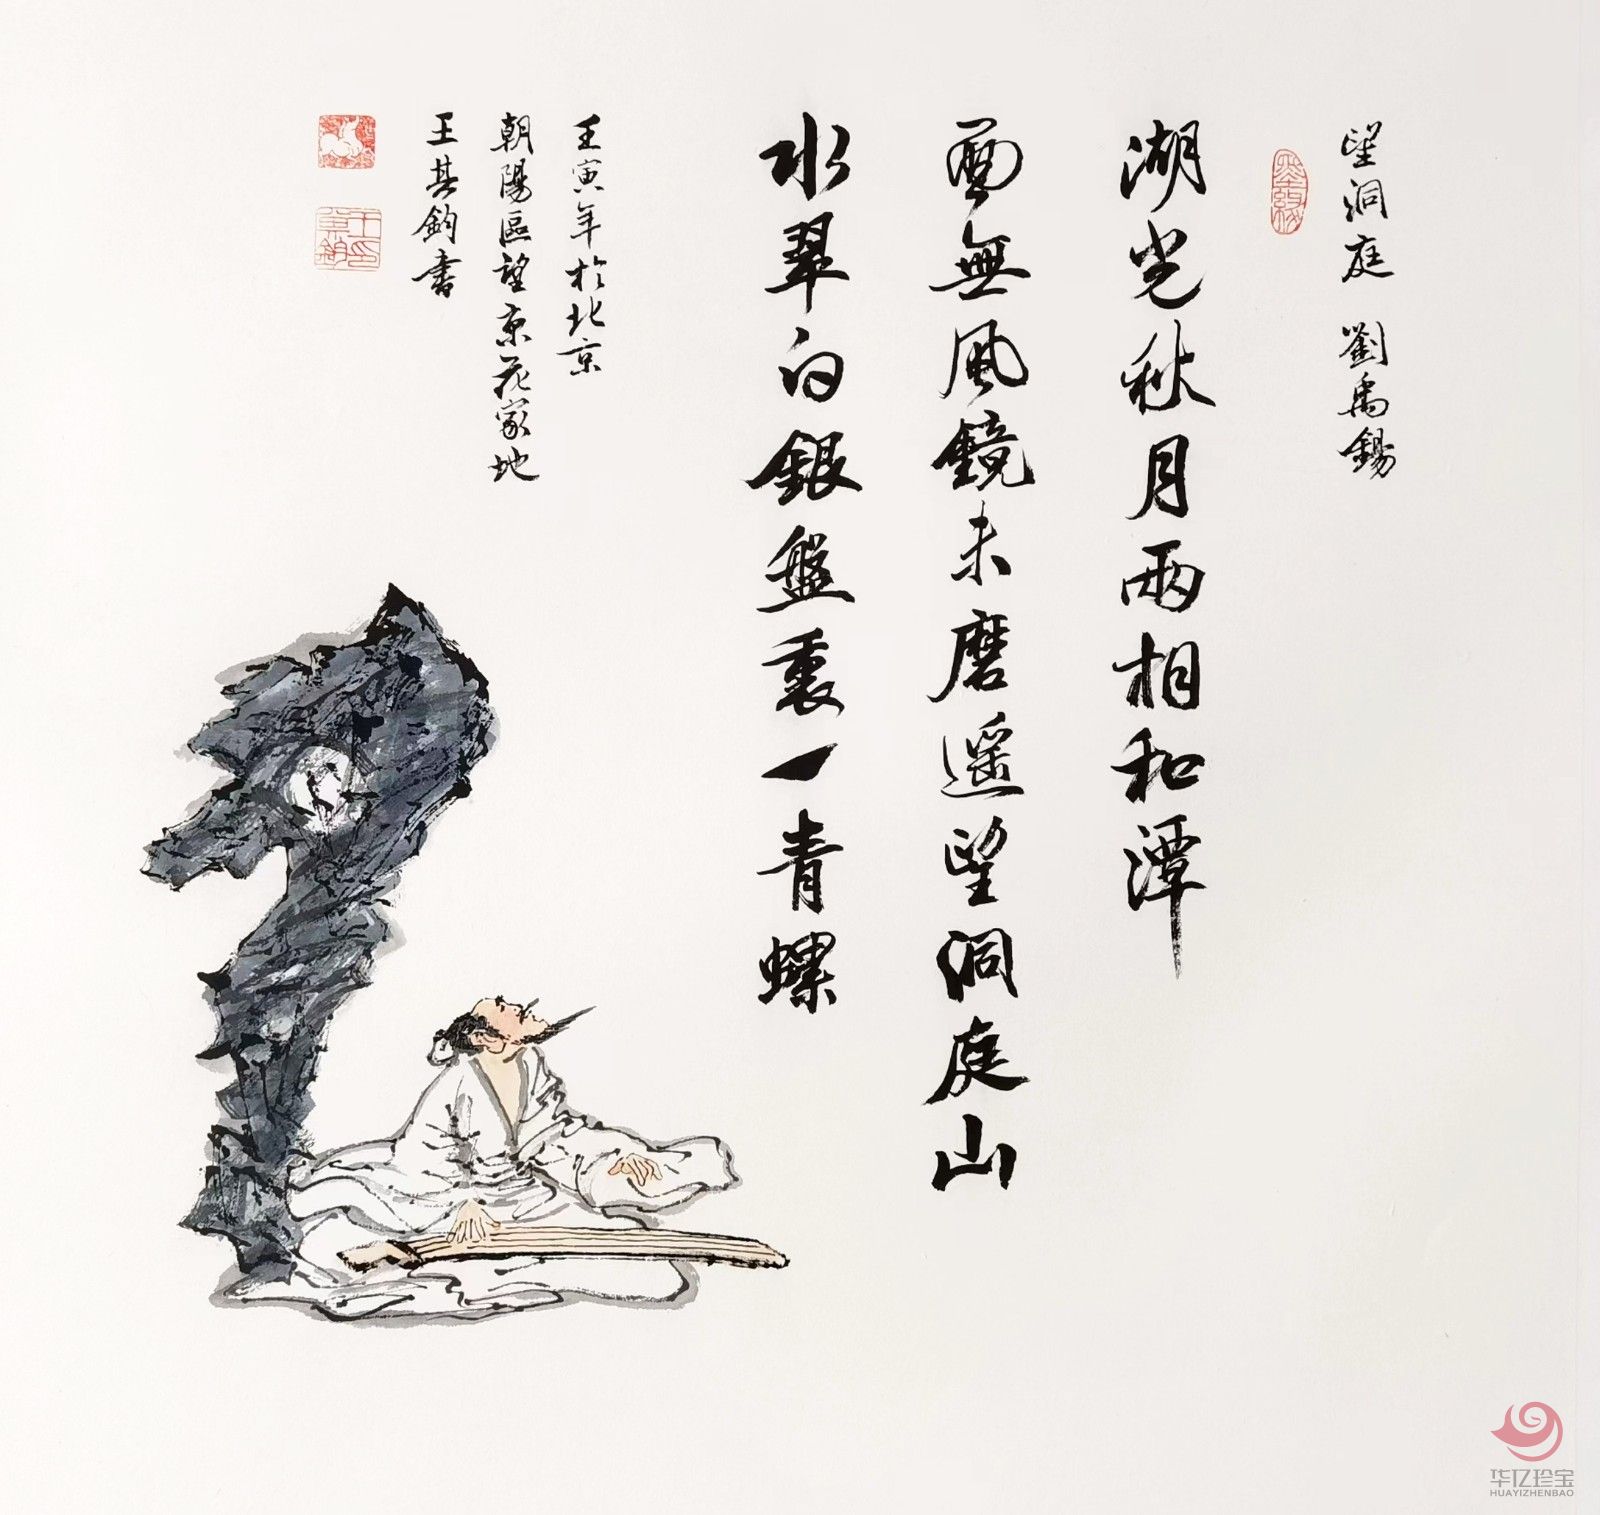 望洞庭 劉禹錫
湖光秋月兩相和潭
面無風鏡未磨遥望洞庭山
水翠白銀盤裏一青螺
壬寅年於北京
朝陽區望京花家地
王其鈞書
华亿珍宝
HUAYIZHENBAO